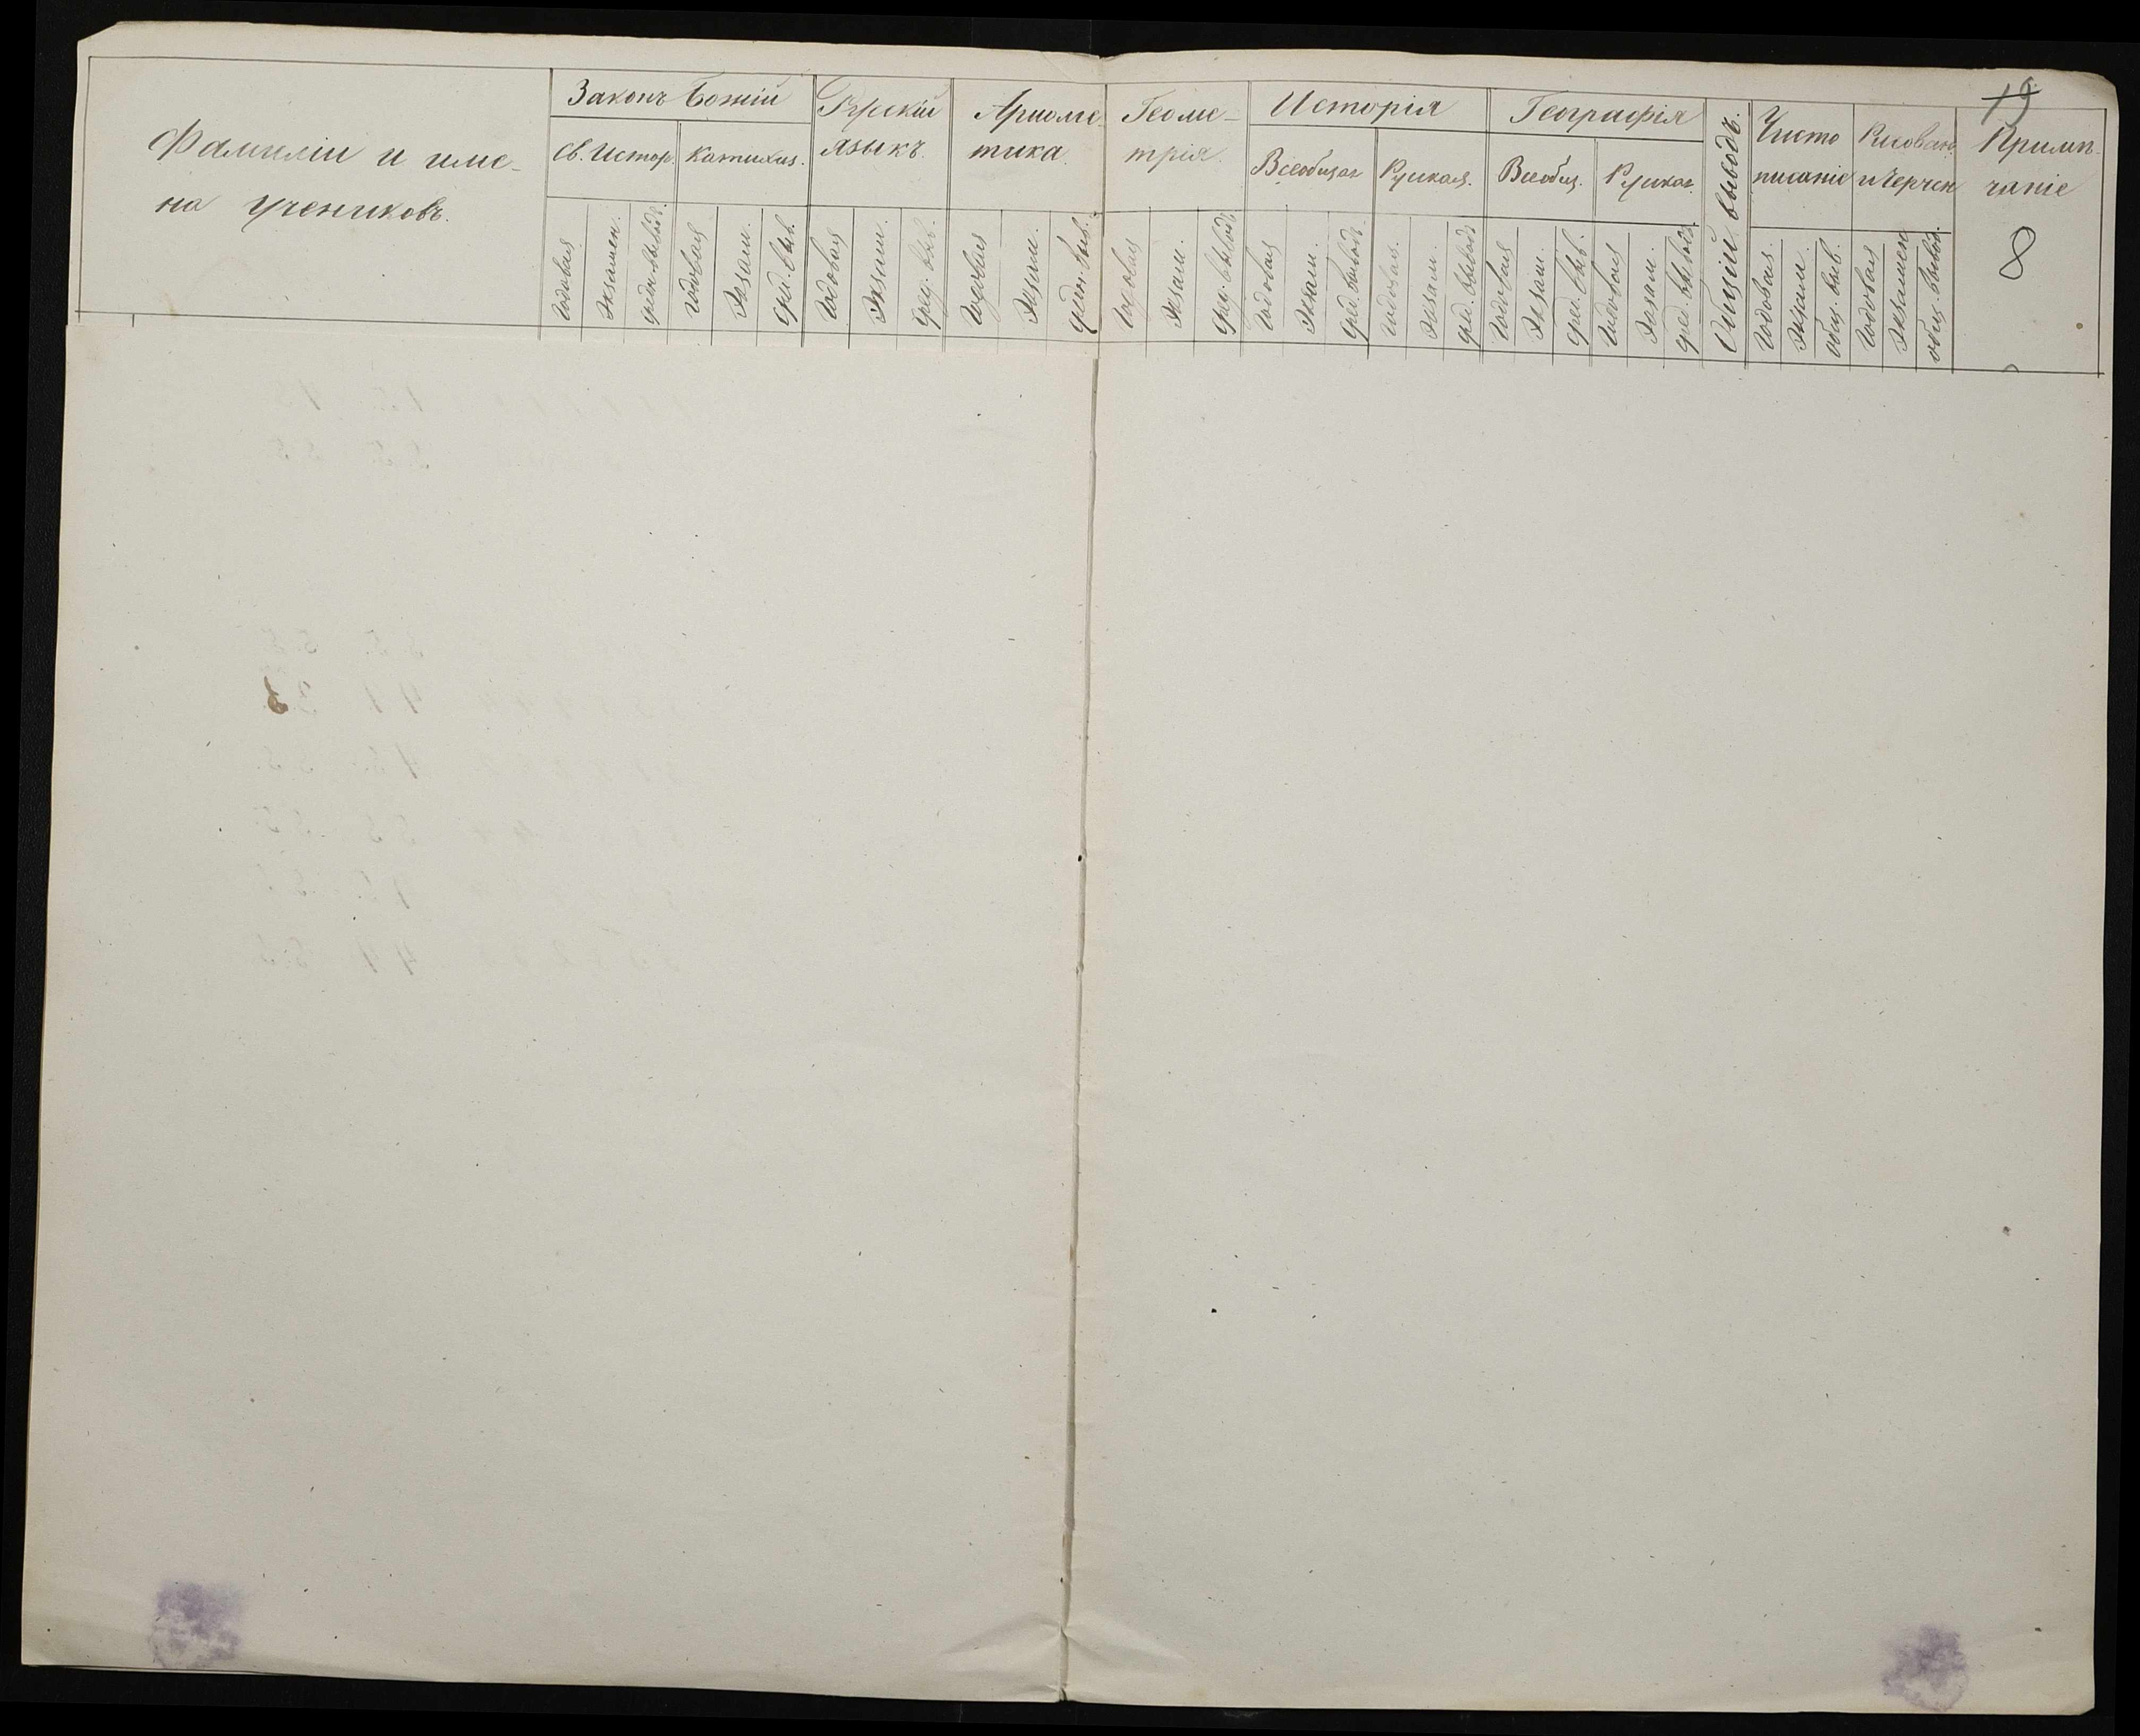 19
Фамиліи и име-
на учениковъ.
Законъ Божій
Св. Истор.
Катихиз.
Русскій
языкъ.
Ариѳме-
тика.
Геоме-
трія.
Исторія
Всеобщая
Русская.
Географія
Всеобщ.
Русская.
Общій выводъ.
Чисто
писаніе
Рисован.
и Черчен
Примѣ-
чаніе
8
Годовая
Экзамен.
средн. вывод.
Годовая
Экзам.
сред. выв.
Годовая
Экзам.
сред. выв.
Годовая
Экзам.
средн. выв.
Годовая
Экзам.
сред. вывод.
Годовая
Экзам.
сред. вывод.
Годовая.
Экзам.
сред. вывод
Годовая
Экзам.
сред. выв.
Годовая
Экзам.
сред. вывод.
Годовая.
Экзам.
общ. выв.
Годовая
Экзамен
общ. вывод.